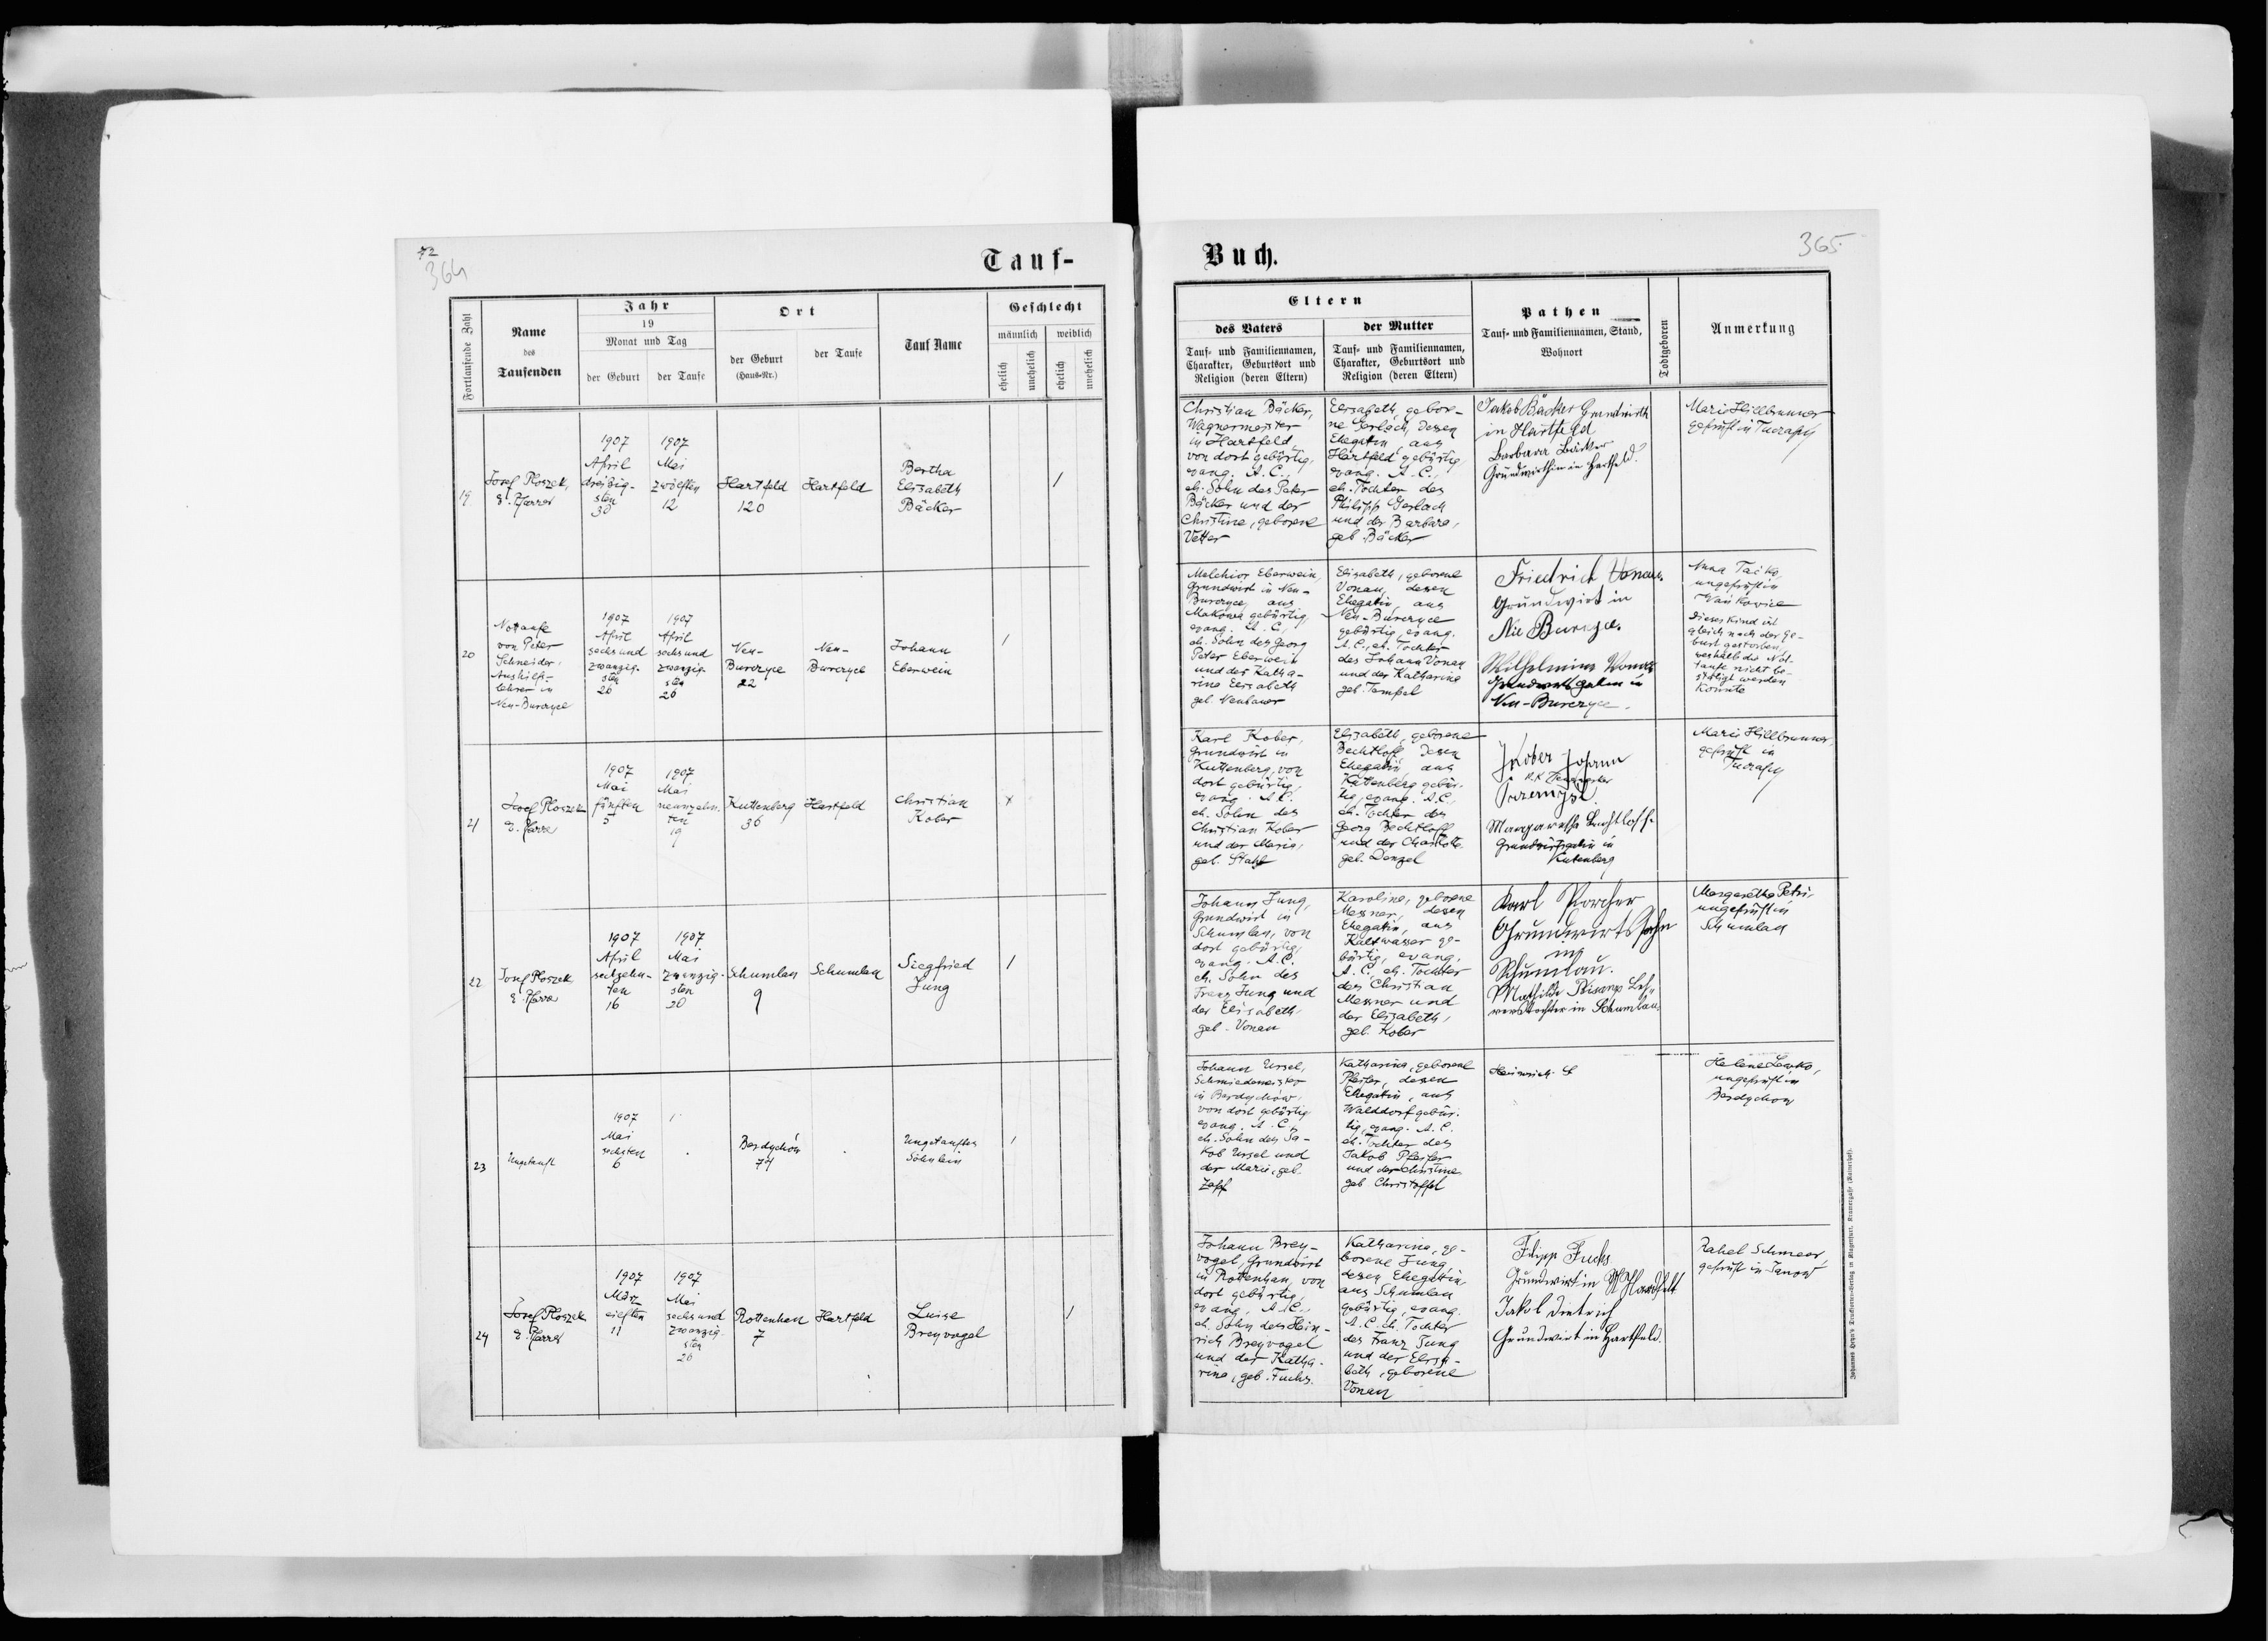 72
364
Tauf-
Fortlaufende Zahl
Name
des
Taufenden
Jahr
19
Monat und Tag
der Geburt
der Taufe
Ort
der Geburt
(Haus-Nr.)
der Taufe
Tauf Name
Geschlecht
männlich
weiblich
ehelich
unehelich
ehelich
unehelich
19
Josef Ploszek,
e. Pfarrer
1907
April
dreißig-
sten
30
1907
Mai
zwölften
12
Hartfeld
120
Hartfeld
Bertha
Elisabeth
Bäcker
/
20
Nottaufe
von Peter
Schneider,
Aushilfs-
lehrer in
Neu-Burczyce
1907
April
sechsund
zwanzig-
sten
26
1907
April
sechsund
zwanzig-
sten
26
Neu-
Burczyce
22
Neu-
Burczyce
Johann
Eberwein
/
21
Josef Ploszek
e. Pfarrer
1907
Mai
fünften
5
1907
Mai
neunzehn-
ten
19
Kuttenberg
36
Hartfeld
Christian
Kober
x
22
Josef Ploszek
e. Pfarrer
1907
April
sechzehn-
ten
16
1907
Mai
zwanzig-
sten
20
Schumlau
9
Schumlau
Siegfried
Jung
/
23
Ungetauft
1907
Mai
sechsten
6
Berdychów
74
Ungetauftes
Söhnlein
/
24
Josef Ploszek
e. Pfarrer
1907
März
eilften
11
1907
Mai
sechsund
zwanzig-
sten
26
Rottenhan
7
Hartfeld
Luise
Breyvogel
/
Buch.
365
Eltern
des Vaters
Tauf- und Familiennamen,
Charakter, Geburtsort und
Religion (deren Eltern)
der Mutter
Tauf- und Familiennamen,
Charakter, Geburtsort und
Religion (deren Eltern)
Pathen
Tauf- und Familiennamen, Stand,
Wohnort
Todtgeboren
Anmerkung
Christian Bäcker,
Wagnermeister
in Hartfeld,
von dort gebürtig,
evang. A. C.,
eh. Sohn des Peter
Bäcker und der
Christine, geborene
Vetter
Elisabeth, gebore-
ne Gerlach, dessen
Ehegatin, aus
Hartfeld gebürtig,
evang. A. C.,
eh. Tochter des
Philipp Gerlach
und der Barbara,
geb. Bäcker
Jakob Bäcker Grundwirth
in Hartfeld
Barbara Bäcker
Grundwirthin in Hartfeld.
Marie Hillbrunner
geprüft in
Melchior Eberwein,
Grundwirt in Neu-
Burczyce, aus
Makowa gebürtig,
evang. A. C.,
eh. Sohn des Georg
Peter Eberwein
und der Katha-
rina Elisabeth
geb. Neubauer
Elisabeth, geborene
Vonau, dessen
Ehegatin, aus
Neu-Burczyce
gebürtig, evang.
A. C., eh. Tochter
des Johann Vonau
und der Katharina
geb. Tempel
Friedrich Vonau.
Grundwirt in
Neu Burczyce.
Wilhelmine Vonau
Grundwirtsgatin in
Neu-Burczyce.
Anna
ungeprüft in
Dieses Kind ist
gleich nach der Ge-
burt gestorben,
weshalb die Not-
taufe nicht be-
stätigt werden
konnte
Karl Kober,
Grundwirt in
Kuttenberg, von
dort gebürtig,
evang. A. C.
eh. Sohn des
Christian Kober
und der Maria,
geb. Stahl
Elisabeth, geborene
Bechtloff, dessen
Ehegatin, aus
Kuttenberg gebür-
tig, evang. A. C.,
eh. Tochter des
Georg Bechtloff
und der Charlotte
geb. Denzel
Kober Johann
Przemyśl.
Margaretha Bechtloff
Grundwirtsgatin in
Kutenberg
Marie Hillbrunner,
geprüft in
Johann Jung,
Grundwirt in
Schumlau, von
dort gebürtig,
evang. A. C.
eh. Sohn des
Franz Jung und
der Elisabeth
geb. Vonau
Karoline, geborene
Messner, dessen
Ehegatin, aus
Kaltwasser ge-
bürtig, evang.
A. C., eh. Tochter
des Christian
Messner und
der Elisabeth,
geb. Kober
Karl
Grundwirtssohn
in
Schumlau.
Mathilde Bisanz Leh-
rerstochter in Schumlau.
Margaretha Petri,
ungeprüft in
Schumlau
Johann Ursel,
Schmiedemeister
in Berdychów,
von dort gebürtig
evang. A. C.,
eh. Sohn des Ja-
kob Ursel und
der Marie, geb.
Zapf
Katharina, geborene
Pfeifer, dessen
Ehegatin, aus
Walddorf gebür-
tig, evang. A. C.
eh. Tochter des
Jakob Pfeifer
und der Christine
geb. Christoffel
Heinrich
Helene Lewko,
ungeprüft in
Berdychow
Johann Brey-
vogel, Grundwirt
in Rottenhan, von
dort gebürtig,
evang. A. C.,
eh. Sohn des Hein-
rich Breyvogel
und der Katha-
rina, geb. Fuchs.
Katharina, ge-
borene Jung,
dessen Ehegatin,
aus Schumlau
gebürtig, evang.
A. C. eh. Tochter
des Franz Jung
und der Elisa-
beth, geborene
Vonau
Filipp Fuchs
Grundwirt in
Jakob Dietrich
Grundwirt in Hartfeld.
Rahel Schmeer,
geprüft in Janow